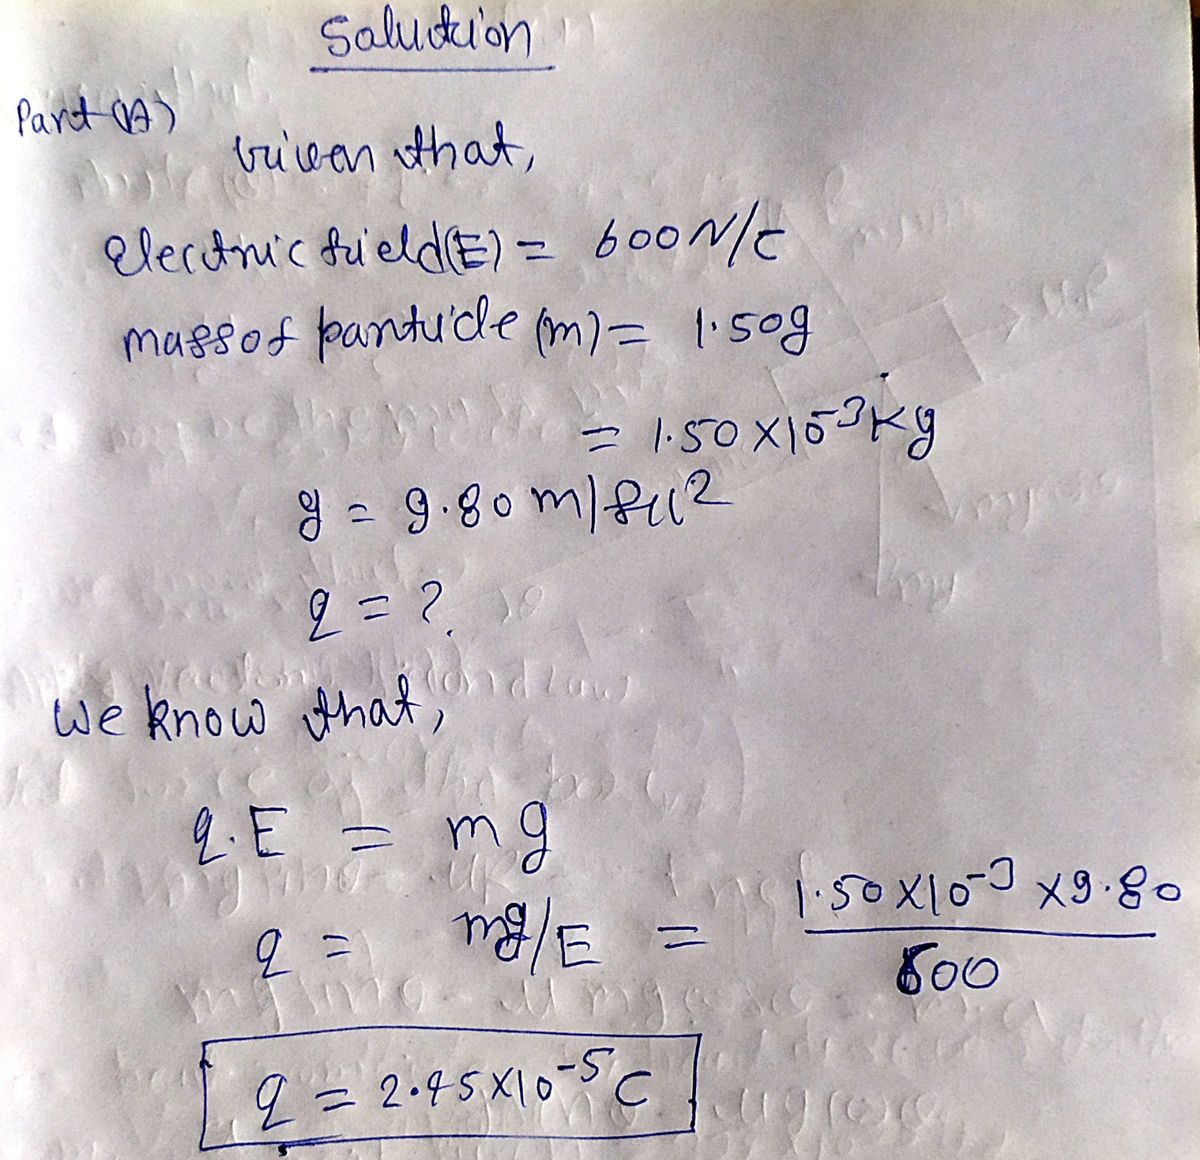 Solution
Part (A)
Given that,
Electric field(E) = 600 N/C
mass of particle (m) = 1.50g
= 1.50 X10-3 Kg
g = 9.80 m/sec2
q = ?
We know that,
q.E = mg
q = mg/E = 1.50 X10-3 X9.80 / 600
q = 2.45 X10-5 C